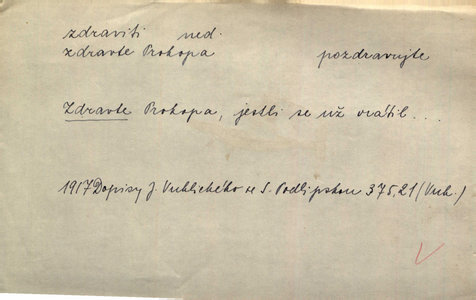 zdraviti ned.
zdravte Prokopa pozdravujte
Zdravte Prokopa, jestli se už vrátil ...
1917 Dopisy J. Vrchlického se S. Podlipskou 375,21 (Vrch.)